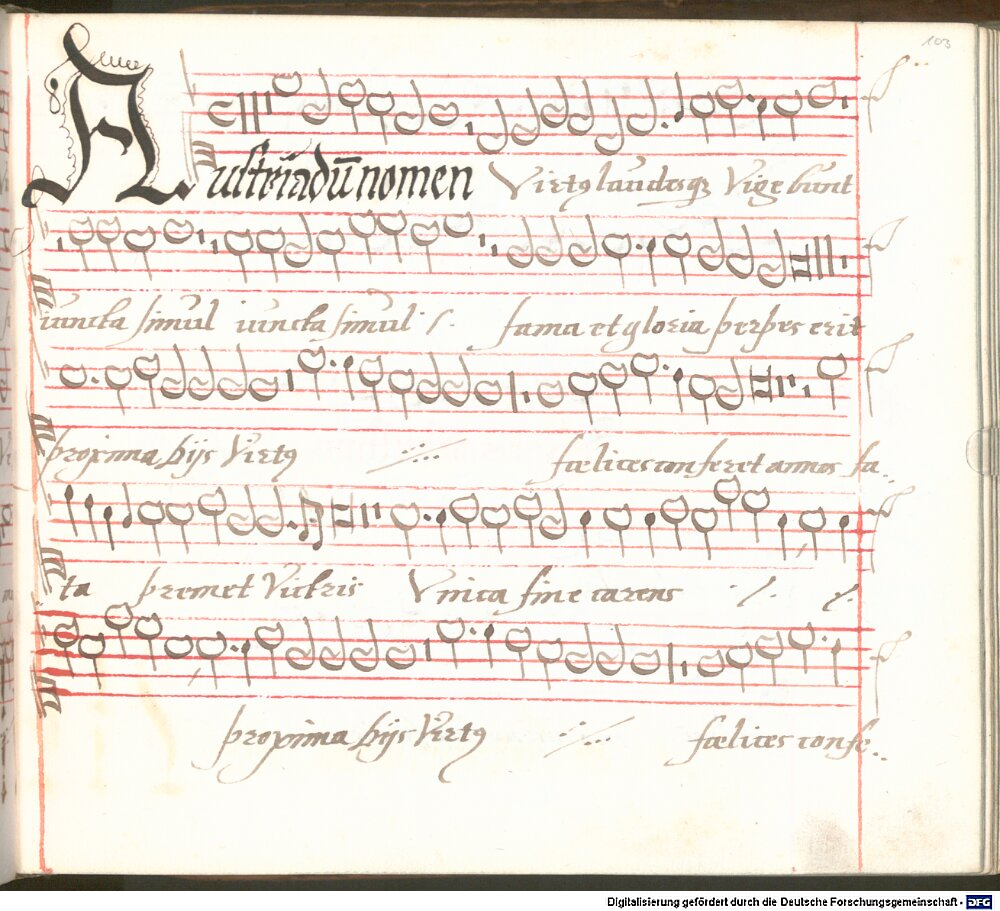 103
Austriadū nomen Virtꝯ laudesqꝫ Vigebunt
iuncta simul iuncta simul ·/· fama et gloria perpes erit
proxima hijs Virtꝯ ·/.. fœlices conferet annos fa..
ta premet Victris Vnica fine carens ·/· ·/·
proxima hijs Virtꝯ ·/.. fœlices confe..
Digitalisierung gefördert durch die Deutsche Forschungsgemeinschaft - DFG